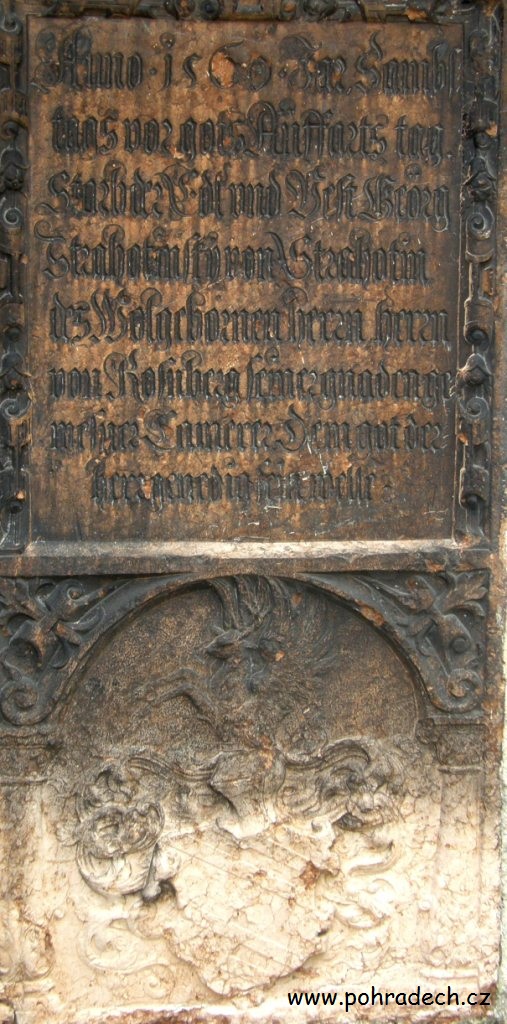 Anno · 1560 · Jar Sambs
tags vor gots Auffarts tag
Starb der Edl und Vest Georg
Strabotinsky von Strabotin
des Wolgebornen herrn herrn
von Rosnberg seiner gnaden ge
wesner Camerer Dem got der
herr genedig sein welle
www.pohradech.cz